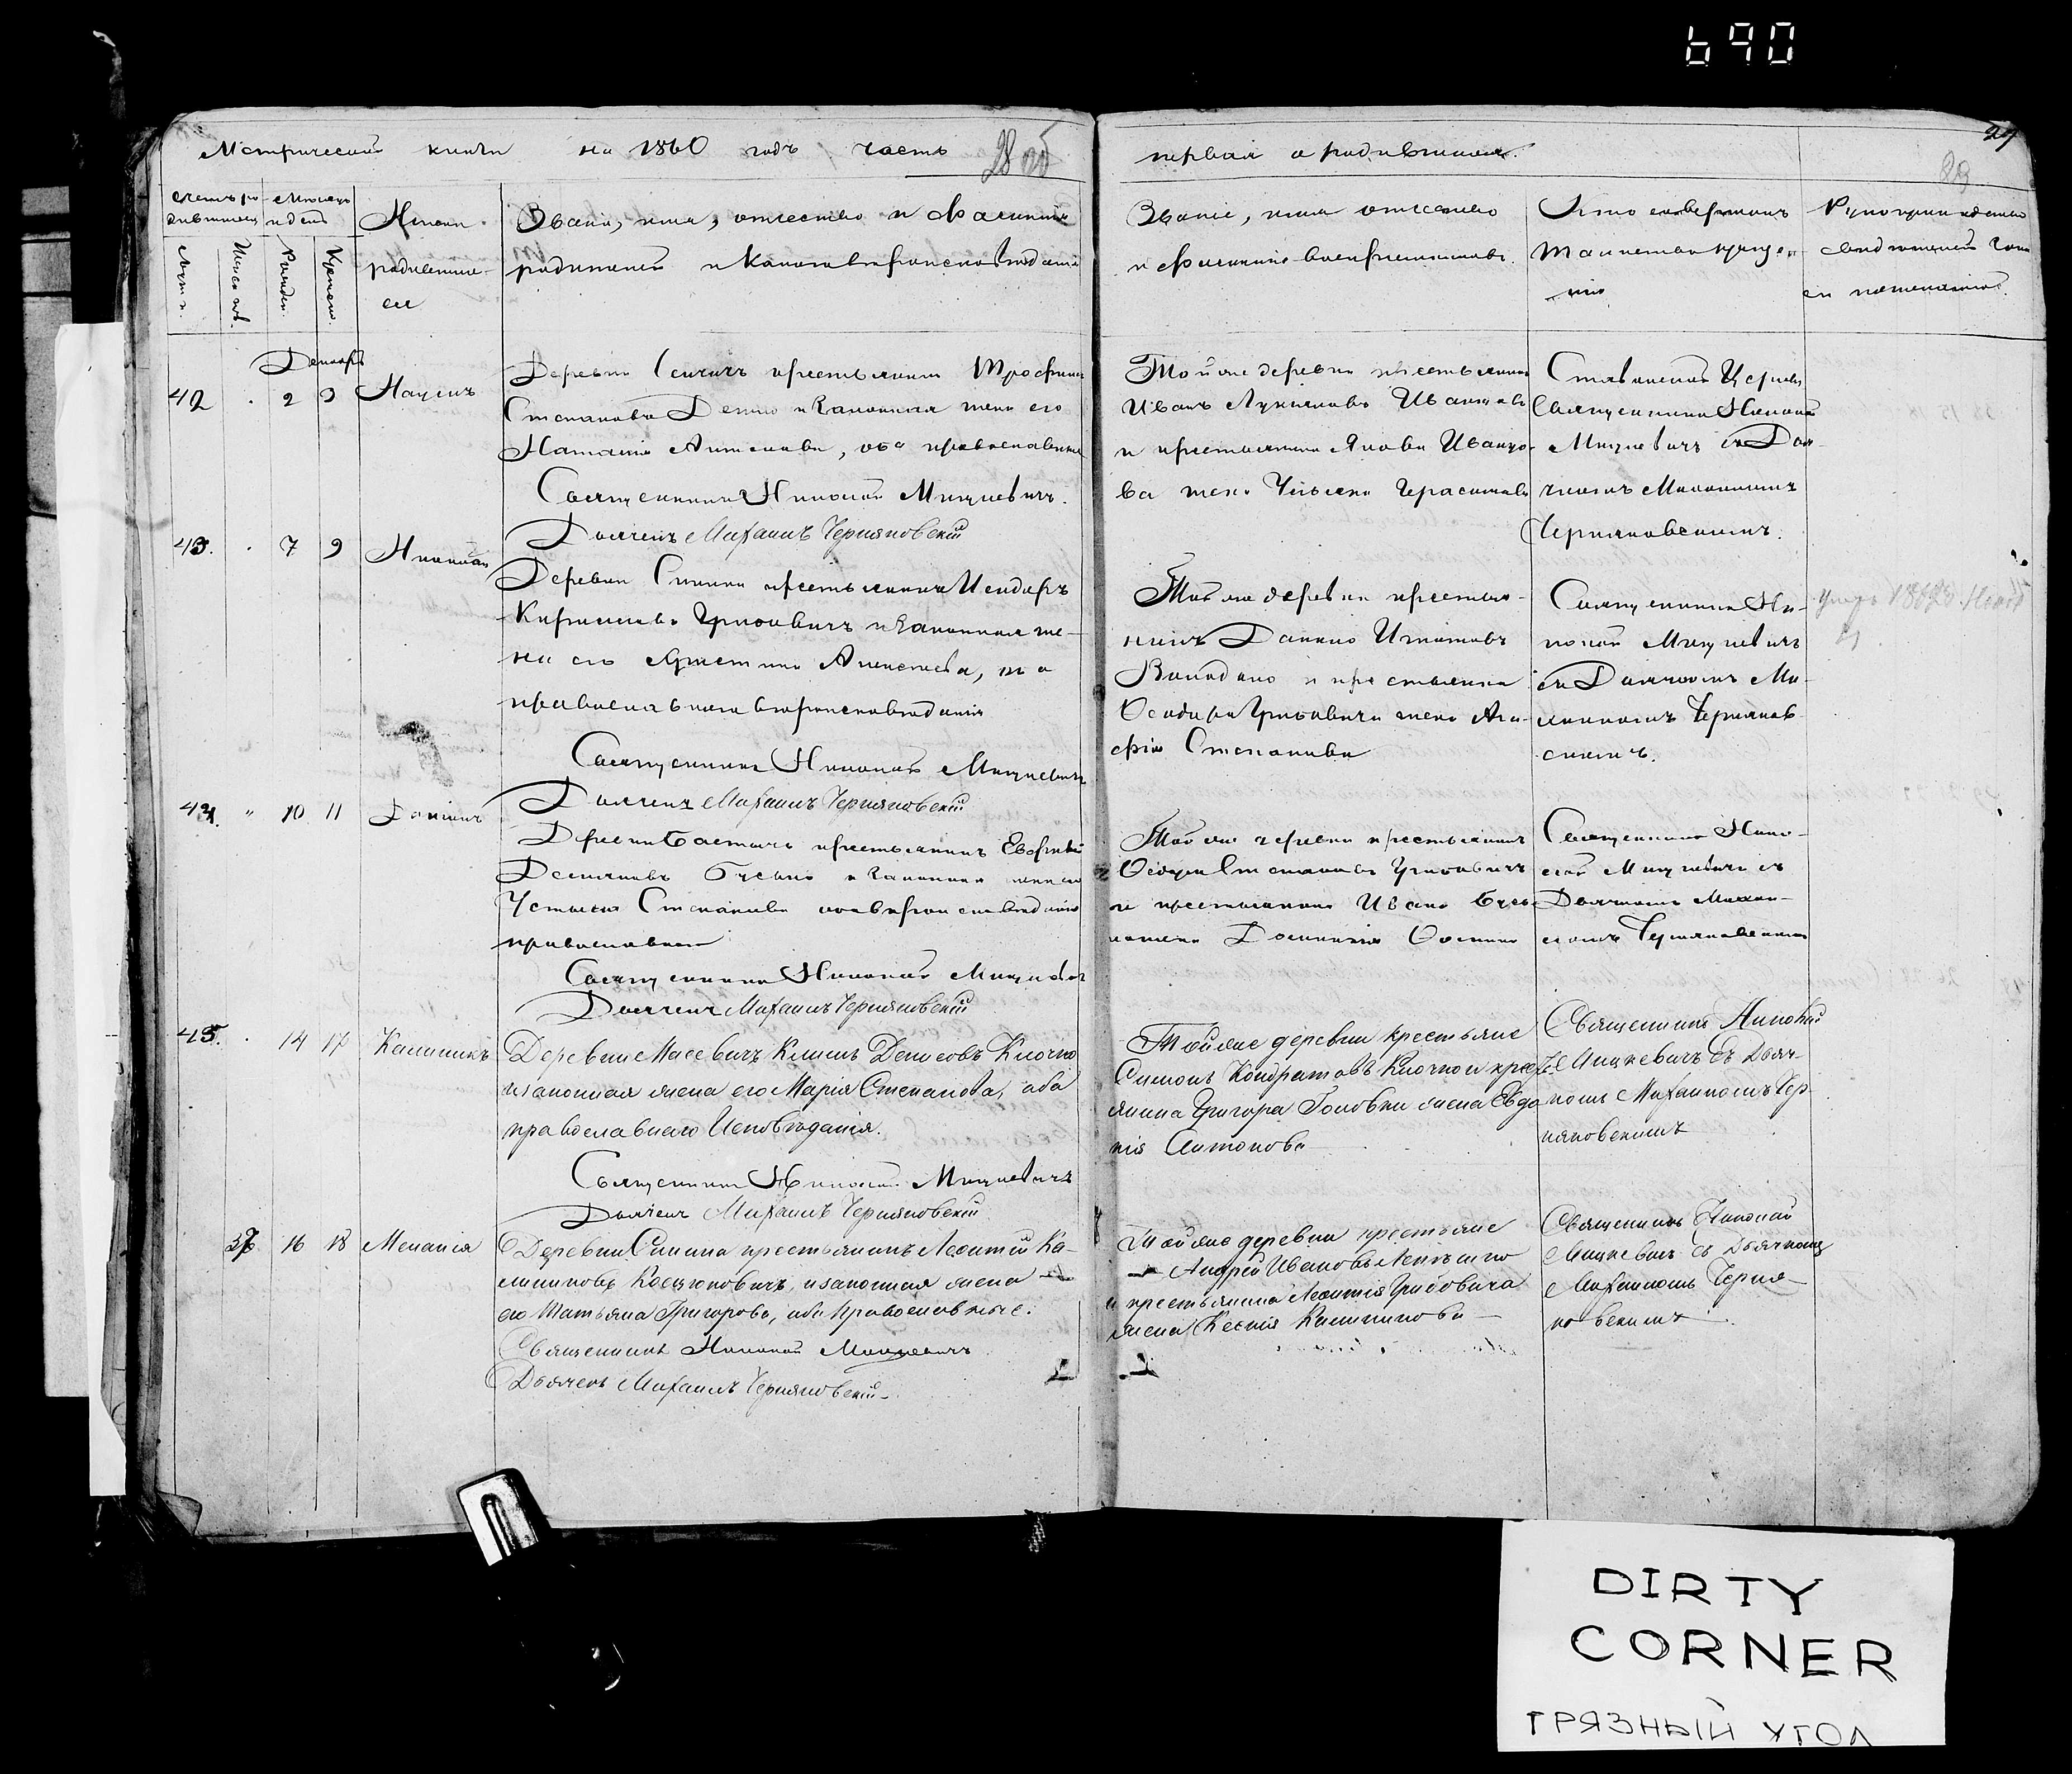 690
Метрической книги на 1860 годъ часть
28 об
первая о родившихся.
29
29
Счетъ ро
дившихся
Мѣсяцъ
и день
Имена
родивших
ся
Званіе, имя, отчество и фамилія
родителей и какого вѣроисповѣданія
Званіе, имя отчество
и фамилія воспріемниковъ.
Кто совершалъ
таинство креще
нія
Рукоприкладство
свидѣтелей
Декабрь
42 2 3 Наумъ
Деревни крестьянинъ Трофимъ
Степановъ и законная жена его
Наталія , оба православные
Священникъ Николай Мицкевичъ.
Дьячекъ Михаилъ Черняковскій
Той же деревни крестьянинъ
Иванъ Лукьяновъ
и крестьянина Якова
ва жена Ульяна Герасимова
Церкви
Священникъ Николай
Мицкевичъ съ Дья-
чкомъ Михаиломъ
Черняковскимъ.
43. 7 9 Николай
Деревни Синина крестьянинъ Исидоръ
Кириловъ Грибовичъ и законная же-
на его Христина Алексѣева, оба
православнаго вѣроисповѣданія
Священникъ Николай Мицкевичъ
Дьячекъ Михаилъ Черняковскій
Той же деревни крестья-
нинъ Данило Игнатовъ
и крестьянина
Ѳеодора Грибовича жена Ага-
фія Степанова
Священникъ Ни-
колай Мицкевичъ
съ Дьячкомъ Ми-
хаиломъ Черняков-
скимъ.
44. 10 11 Даніилъ
Деревни крестьянинъ
Демьяновъ Бусько и законная жена его
Устинья Степанова оба вѣроисповѣданія
православнаго
Священникъ Николай Мицкевичъ
Дьячекъ Михаилъ Черняковскій
Той же деревни крестьянинъ
Ѳеодоръ Степановъ Грибовичъ
и крестьянина Ивана Бусь-
ка жена
Священникъ Нико-
лай Мицкевичъ съ
Дьячкомъ Михаи-
ломъ Черняковскимъ
45. 14 17 Калиникъ
Деревни Масевичъ Климъ Денисовъ Клочко
и законная жена его Марія Степанова, оба
православнаго Исповѣданія.
Священникъ Николай Мицкевичъ
Дьячекъ Михаилъ Черняковскій
Той же деревни крестьяне
Симонъ Кондратовъ Клочко и крест
янина Григора Головки жена Евдо
кія Антонова
Священникъ Николай
Мицкевичъ съ Дьяч-
комъ Михаиломъ Чер-
няковскимъ
36 16 18 Меланія
Деревни Синина крестьянинъ Леонтій Ка-
лениковъ Косцюковичъ, и законная жена
его Татьяна Григорова, оба Православные.
Священникъ Николай Мицкевичъ
Дьячекъ Михаилъ Черняковскій
Той же деревни крестьяне
Андрей Ивановъ
и крестьянина Леонтія Грибовича
жена Ксенія Калиникова
Священникъ Николай
Мицкевичъ съ Дьячкомъ
Михаиломъ Черня-
ковскимъ
DIRTY
CORNER
ГРЯЗНЫЙ УГОЛ